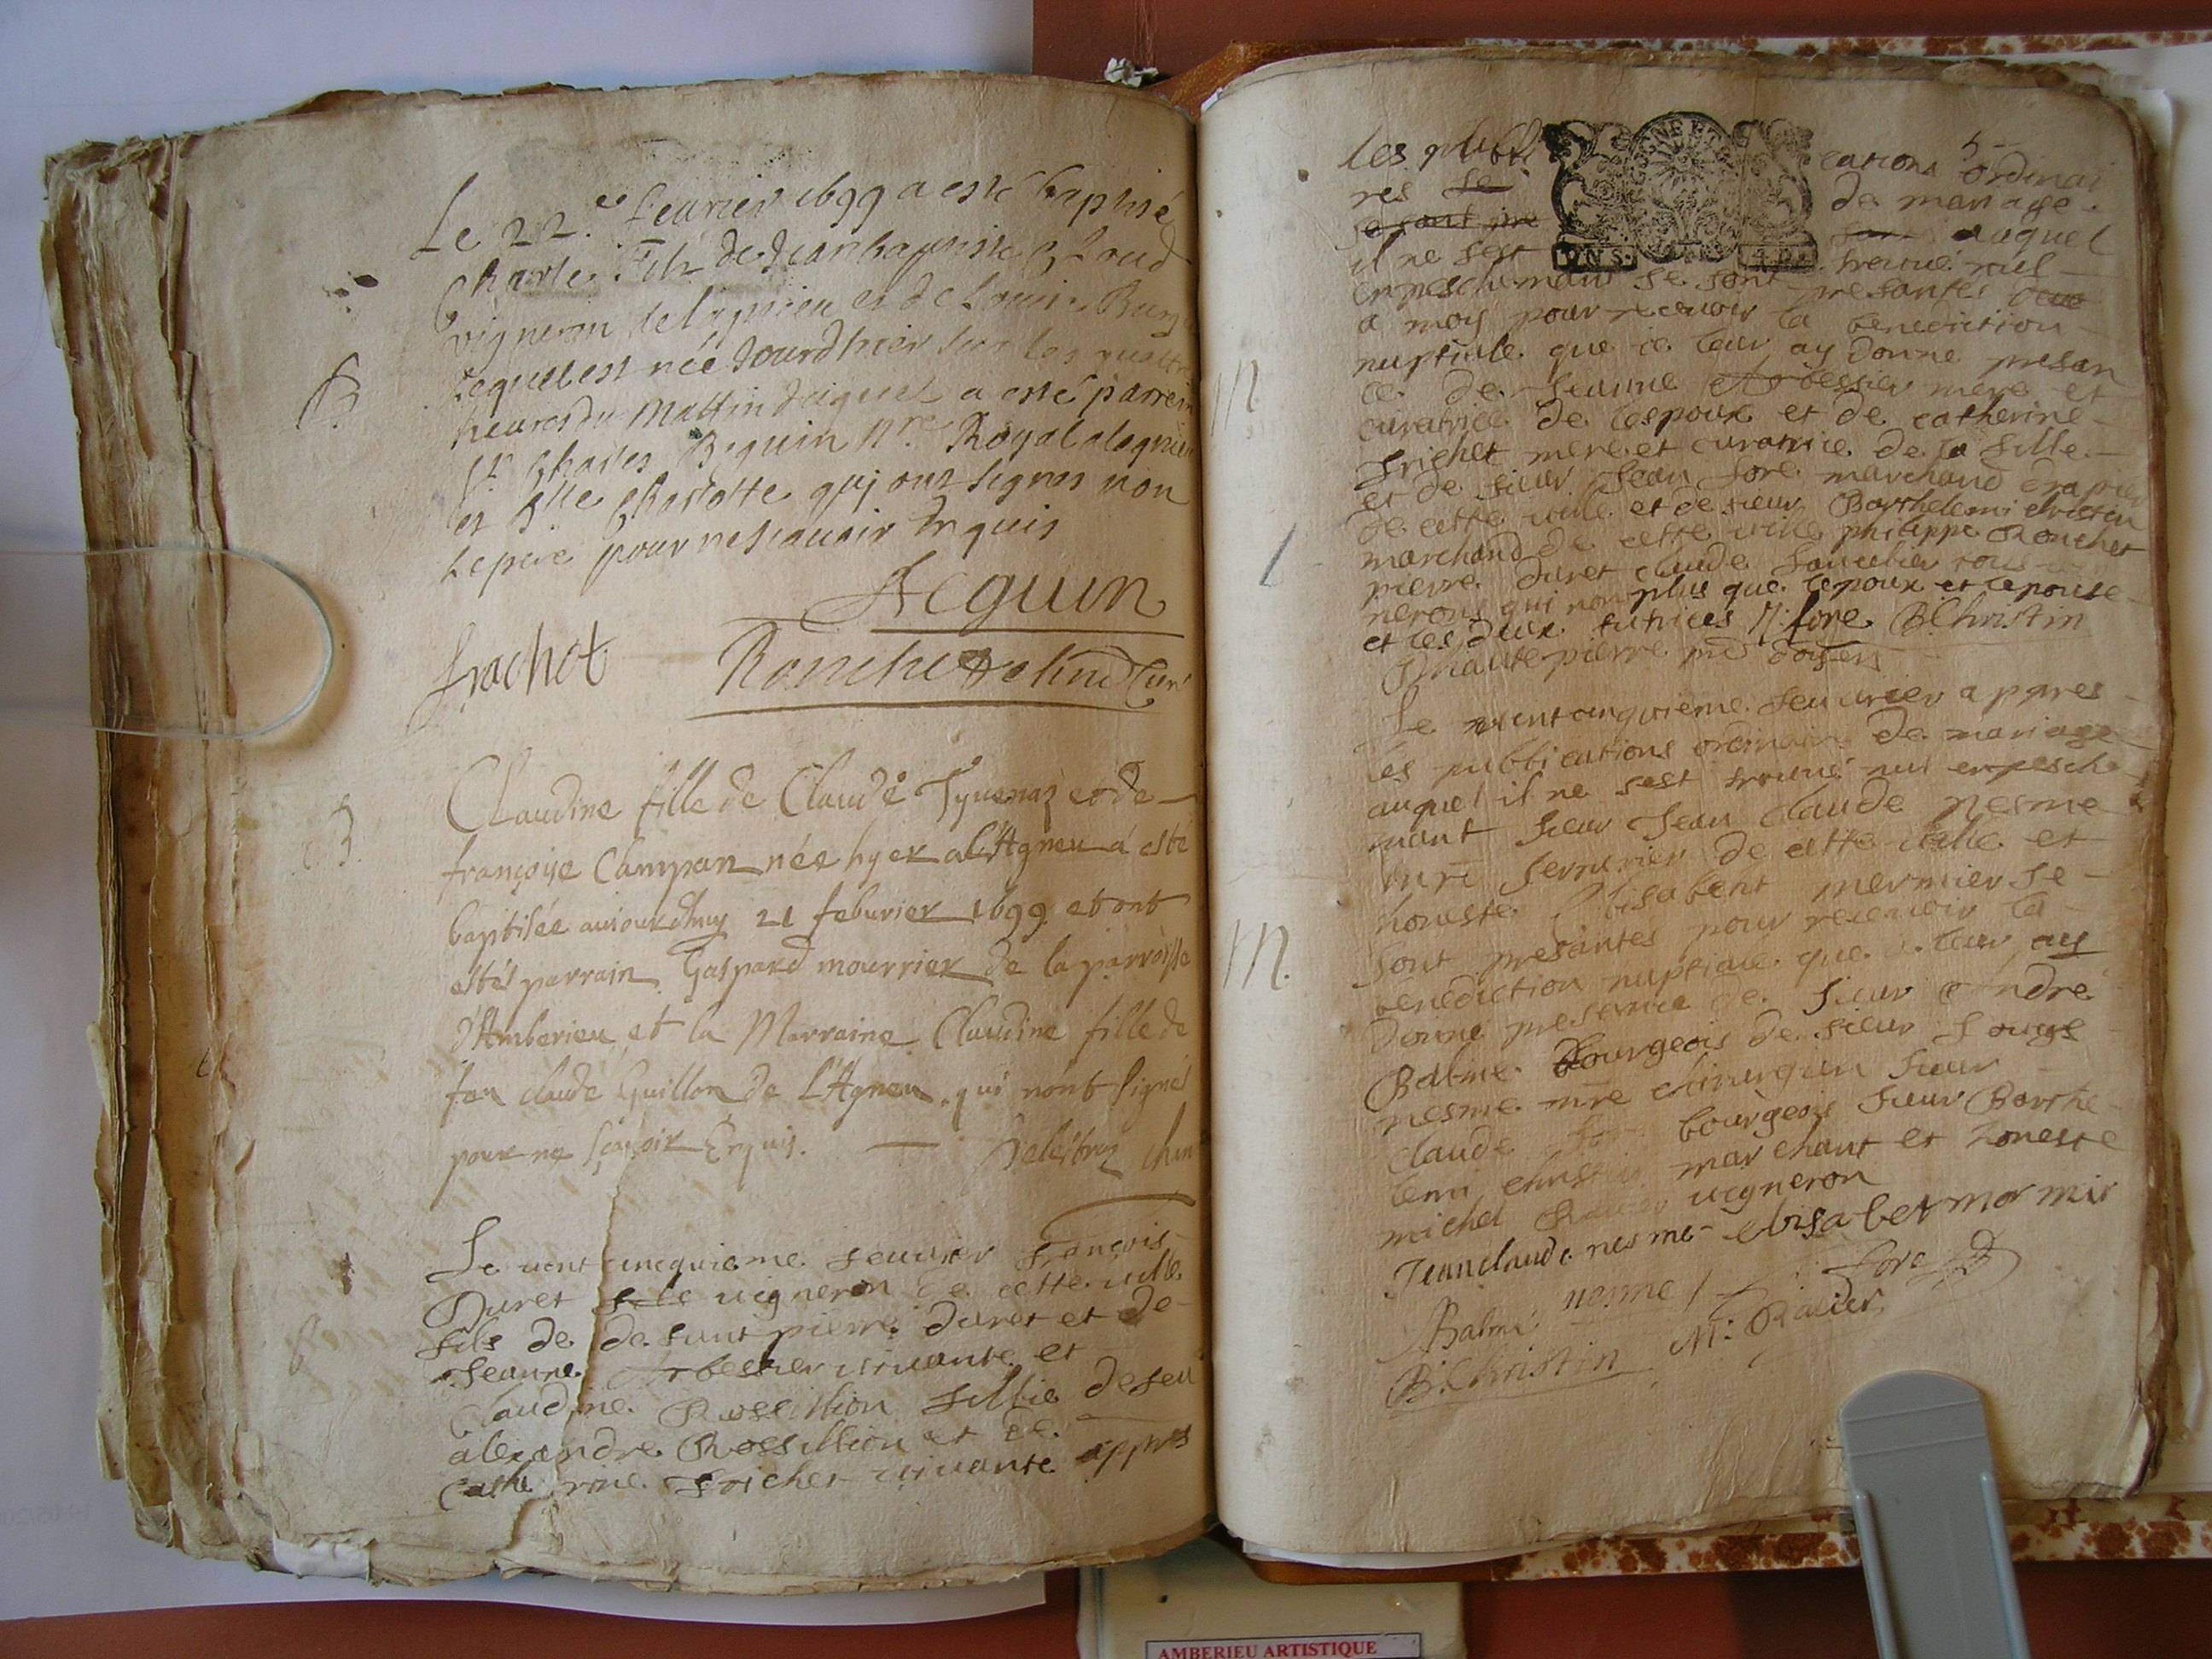 Le 22.e feurier 1699 a esté baptisé
Charle Filz de Jean baptiste
vigneron de lagnieu et de Louise
Lequel est néé Jourdhier sur les quattre
heures du Mattin duquel a esté parrein
Sr Charles Beguin Nre Royal alagnieu
et dlle Charlotte qui ont signes non
Le pere pour ne scauoir Enquis
Frachet
Claudine fille de Claude Tyuenaz et de
françoise Campan née hyer al'Agneu a esté
baptisée aujourdhuy 21 feburier 1699 et ont
estés parrain Gaspard mourrier de la parroisse
d'Amberieu et la Marraine Claudine fille de
feu claude Guillon de L'Agneu qui nont signés
pour ne sçavoir Enquis.
Le uent cinquieme feurier françois
Duret uigneron de cette uille
fils de defunt pierre duret et de
Jeanne Arbessier uiuante et
Claudine Rossillion fillie de feu
alexandre Rossillion et de
Catherine frichet uiuante appres
B
B.
5
les publi cations ordinai
res se de mariage
se sont pre auquel
il ne sest treuué nul
enpeschemant se sont presantes
a moy pour receuoir la benediction
nuptiale que ie leur ay donne presan
ce de Jeanne Arbessier mere et
curatrice de lespoux et de catherine
frichet mere et curatrice de la fille
et de sieur Jean fore marchand drapier
de cette uille et de sieur Barthelemi christin
marchand de cette uille philippe Ronchet
pierre duret claude
nerons qui non plus que lepoux et lepouse
et les deux tutrices J. fore B Christin
Le uint cinquieme feuurier appres
les publications ordinaires de mariage
auquel il ne sest trouué nul enpesche
mant sieur Jean Claude nesme
mre serrurier de cette uille et
honeste Elisabeht mermier se
sont presantes pour receuoir la
benediction nuptiale que ie leur ay
donne presence de sieur Andre
Balme bourgeois de sieur Louys
nesme mre chirurgien sieur
claude fore bourgeois sieur Barthe
lemi christin marchant et honeste
michel Rauier uigneron
Jean claude nesme elisabet mormir
Balme nesme fore
B. Christin M: Rauier
M
M.
AMBERIEU ARTISTIQUE